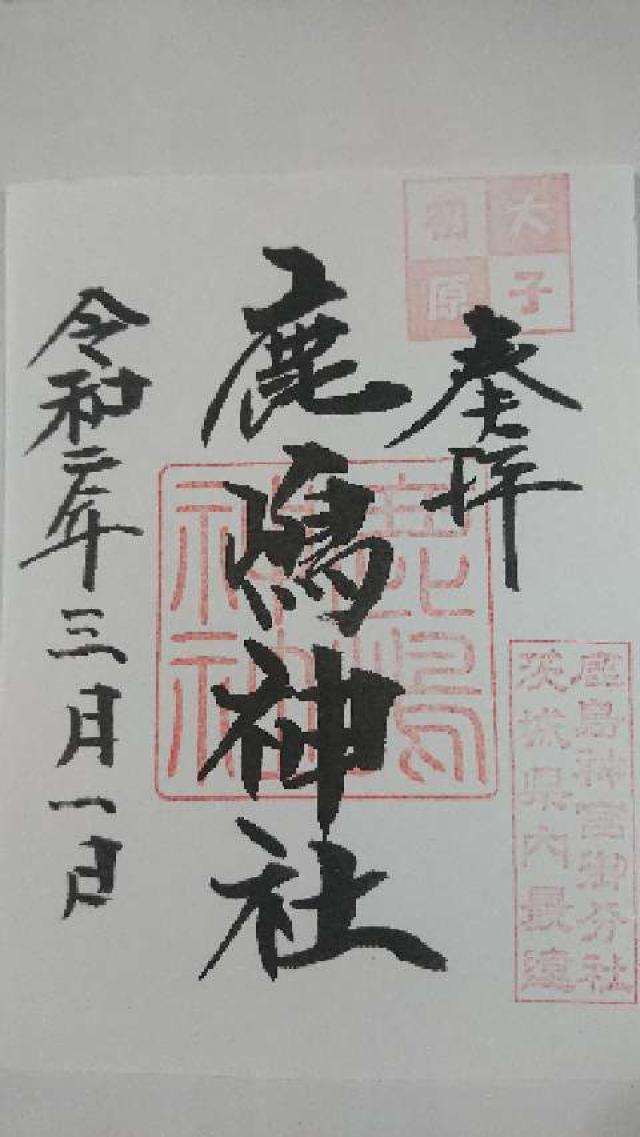 大子
初原
奉拝
鹿島神宮御分社
茨城県内最遠
鹿嶋神社
鹿嶋
神社
令和二年三月一日